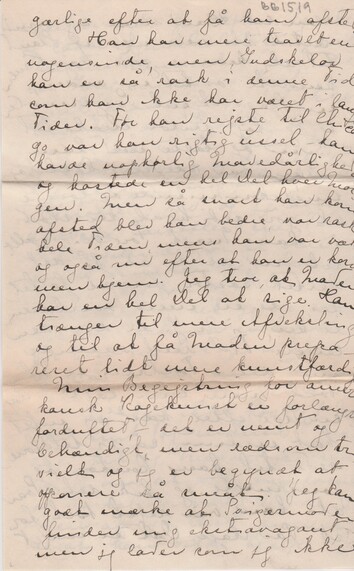 BB/5/9
gærlige efter at få ham afsted
Han har mere travlt end
nogensinde, men Gudskelov
han er så rask i denne Tid
som han ikke har været i lange
Tider. Før han rejste til Chica
go var han rigtig ussel, han
havde uophørlig Mavedårlighed
og kastede en hel Del hver Mor
gen. Men så snart han kom
afsted blev han bedre, var rask
hele Tiden mens han var væk
og også nu efter at han er kom
men hjem. Jeg tror, at Maden
har en hel Del at sige. Han
trænger til mere Afveksling
og til at få Maden præpa
reret lidt mere kunstfærdig
Min Begejstring for ameri
kansk Kogekunst er forlængst
forduftet, det er nemt og
behændigt, men rædsom tri
vielt og jeg er begyndt at
oponere så småt. Jeg kan
godt mærke at Svigermoder
finder mig ekstravagant
men jeg lader som jeg ikke